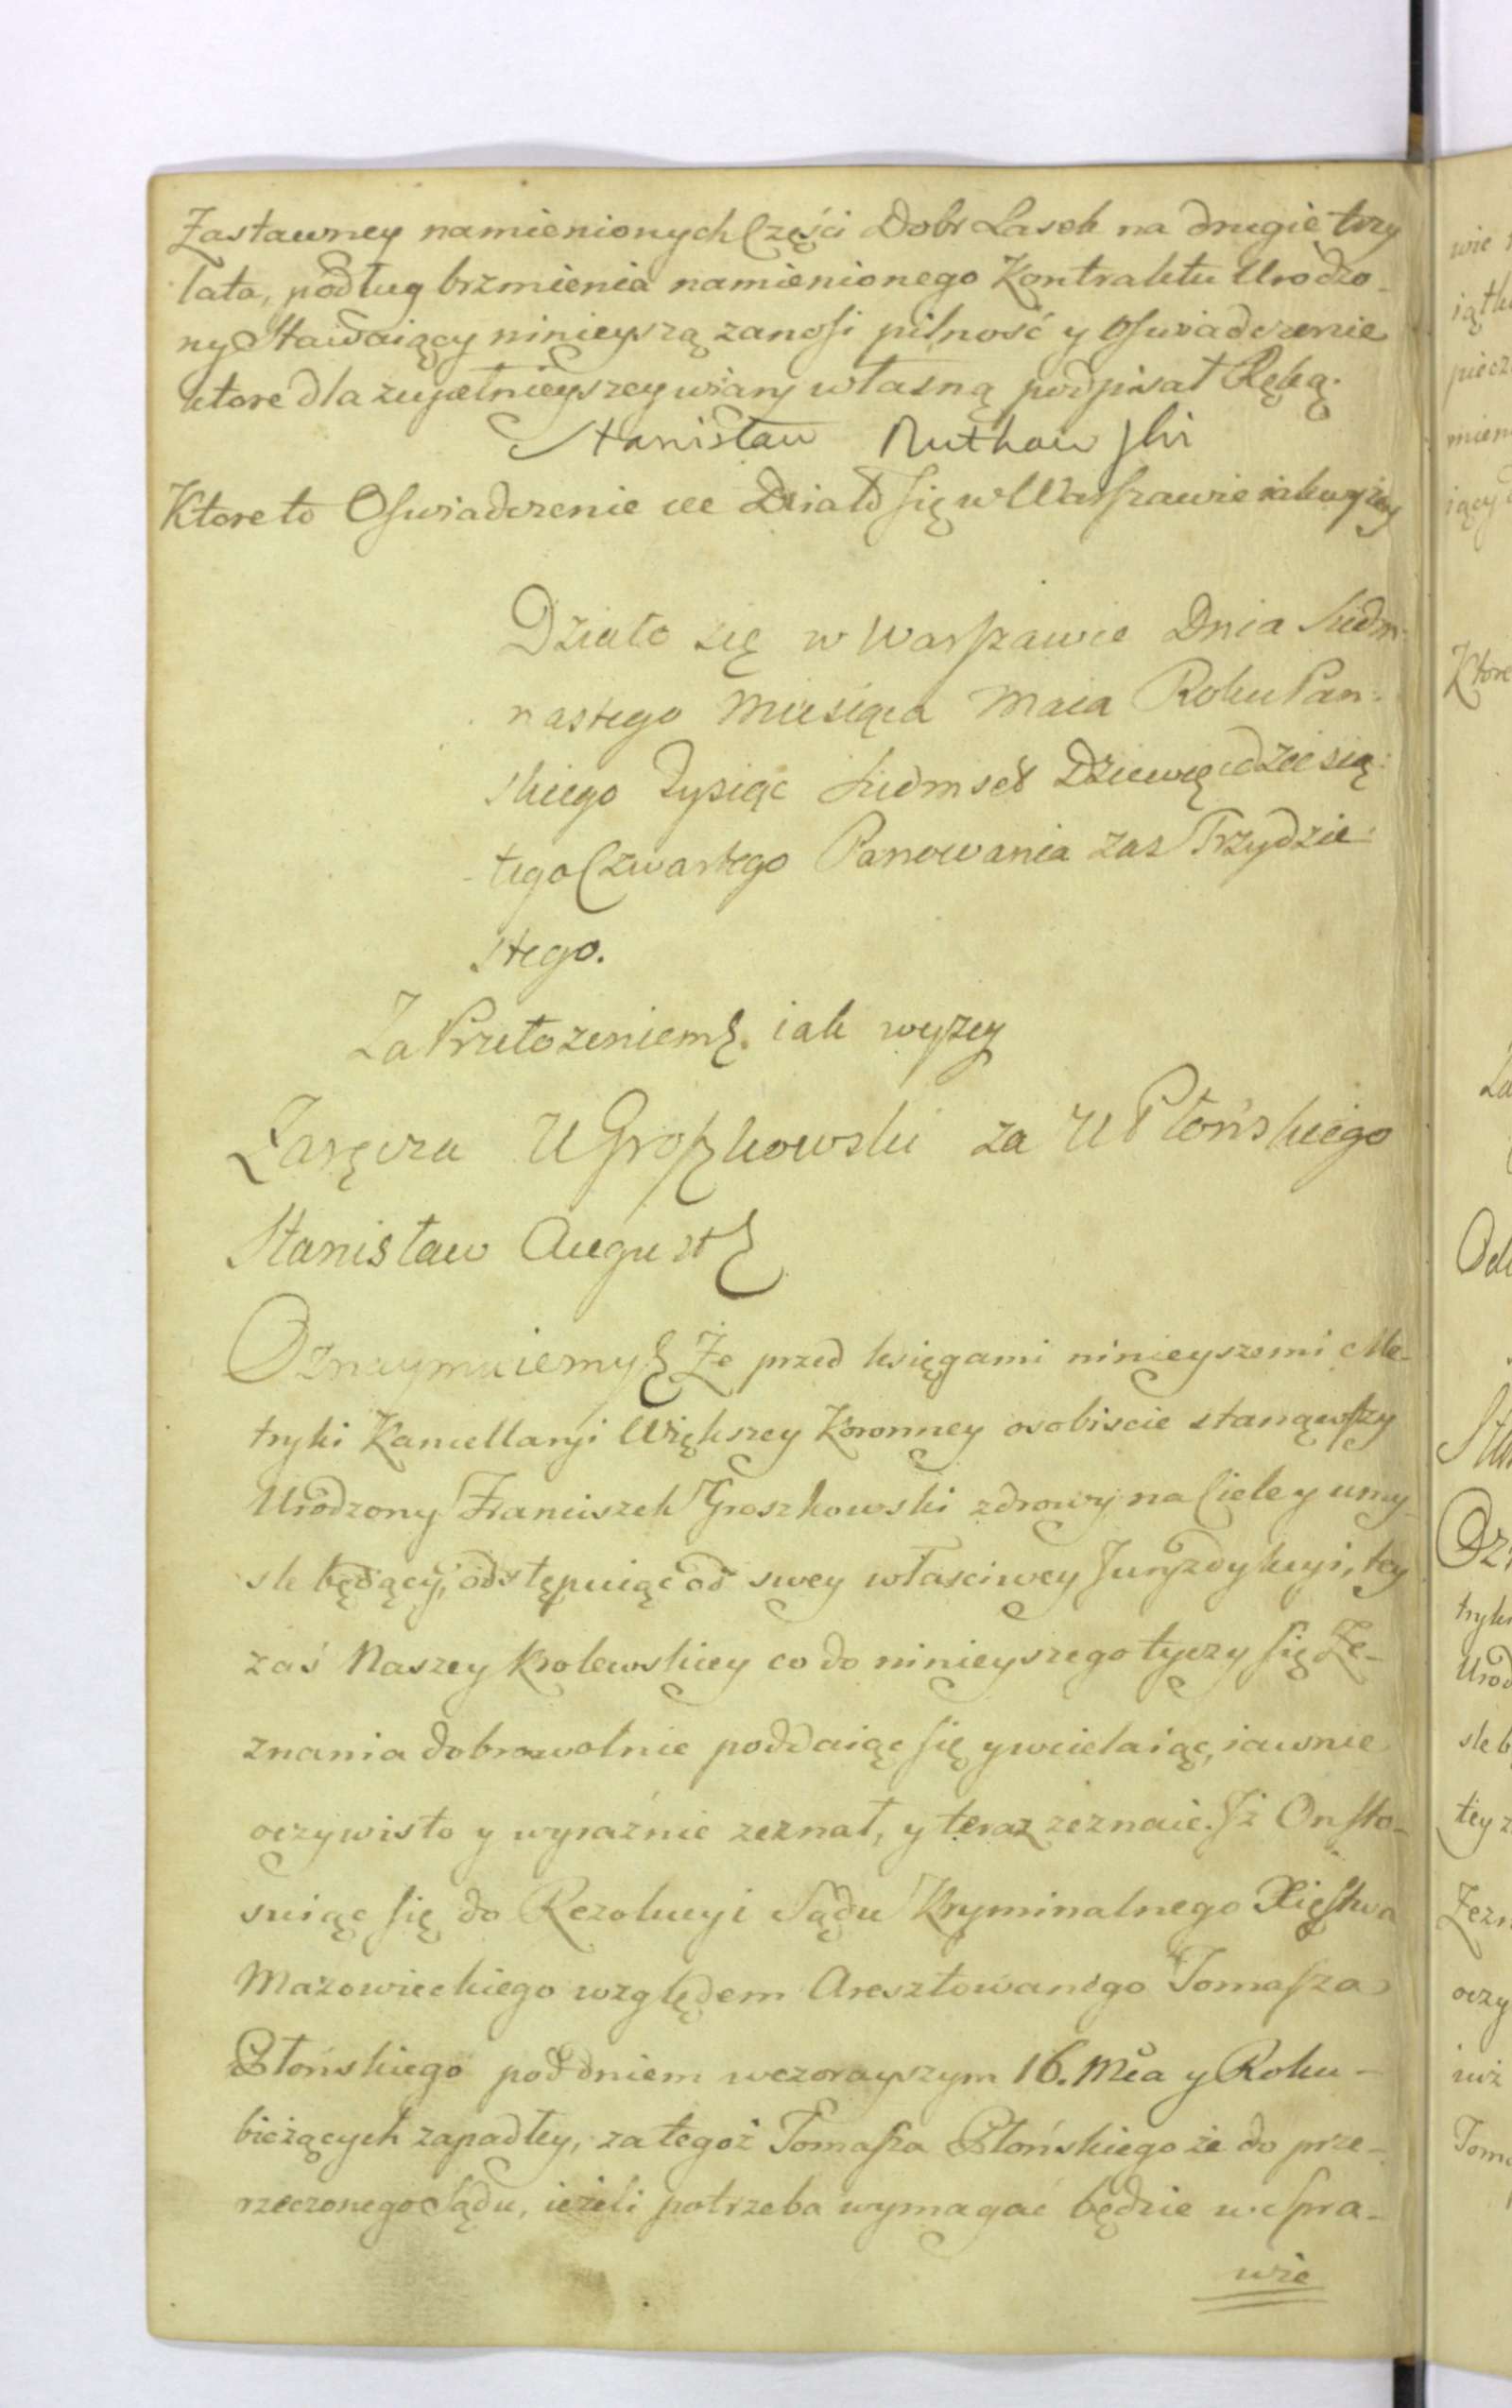 Zastawney namienionych Części Dobr Lasek na drugie trzy
lata, podług brzmienia namienionego Kontraktu Urodzo-
ny Stawaiący ninieyszą zanosi pilność y Oswiadczenie
ktore dla zupełnieyszey wiary własną podpisał Ręką.
Stanisław Rutkowski
Ktore to Oswiadczenie etc Działo się w Warszawie iak wyżey
Działo się w Warszawie Dnia Siedm-
nastego Miesiąca Maia Roku Pan-
skiego Tysiąc Siedmset Dziewięcdziesią-
tego Czwartego Panowania zas Trzydzie-
stego.
Za Przełozeniem iak wyzey
Zaręcza U Groszkowski za U Płońskiego
Stanisław August
Oznaymuiemy Że przed księgami ninieyszemi Me-
tryki Kancellaryi Większey Koronney osobiscie stanąwszy
Urodzony Franciszek Groszkowski zdrowy na Ciele y umy-
sle będący, odstępuiąc od swey własciwey Juryzdykcyi, tey
zaś Naszey Krolewskiey co do ninieyszego tyczy się Ze-
znania dobrowolnie poddaiąc się y wcielaiąc, iawnie
oczywisto y wyraźnie zeznał, y teraz zeznaie. Iż On sto-
suiąc się do Rezolucyi Sądu Kryminalnego Xięstwa
Mazowieckiego względem Aresztowanego Tomasza
Płońskiego pod dniem wczorayszym 16. Mca y Roku
bieżących zapadłey, za tegoż Tomasza Płońskiego że do prze-
rzeczonego Sądu, ieżeli potrzeba wymagać będzie w Spra-
wie
wie
iątk
piecz
mien
iący
Ktore
Za
Odl
Sta
Oz
tryki
Urod
sle b
tey z
Zezn
oczy
iuż
Tom